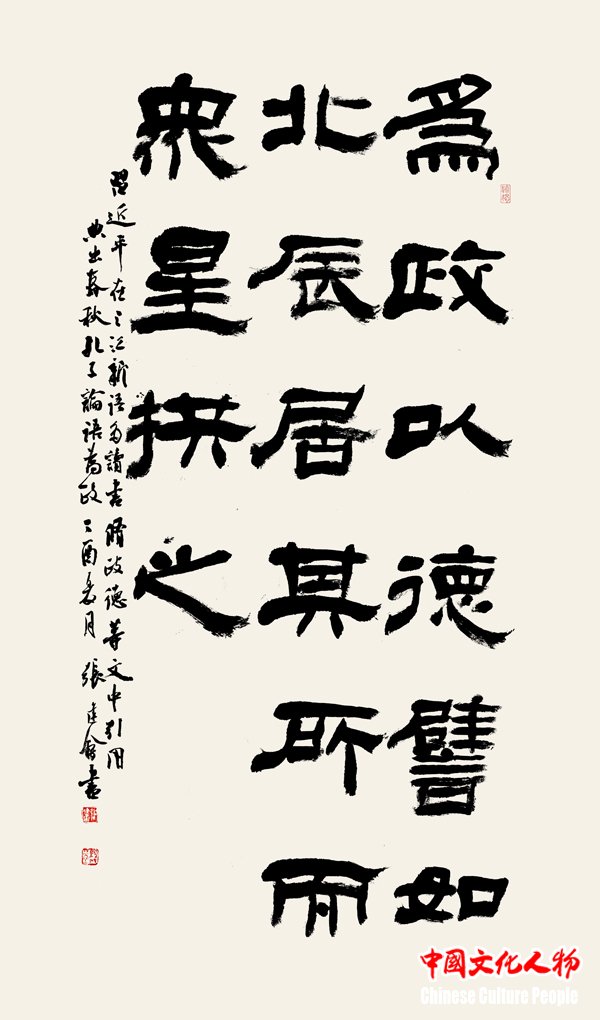 爲政以德譬如
北辰居其所而
衆星拱之
習近平在之江新語多讀書脩政德等文中引用
典出春秋孔子論語為政 酉 月 張建會書
中國文化人物
Chinese Culture People